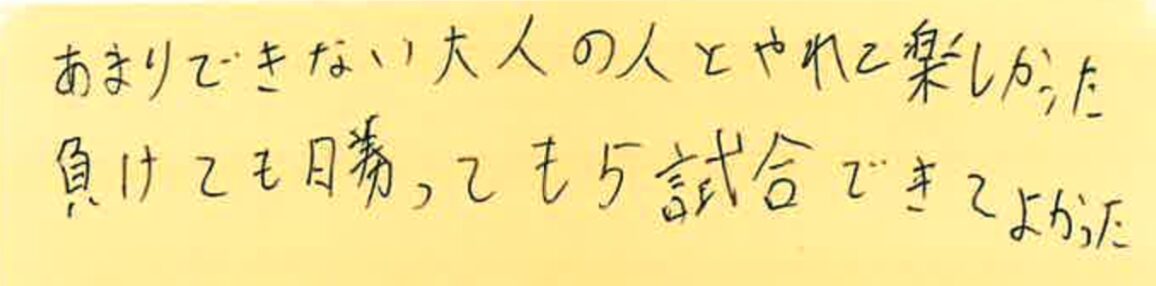 あまりできない大人の人とやれて楽しかった
負けても勝っても5試合できてよかった